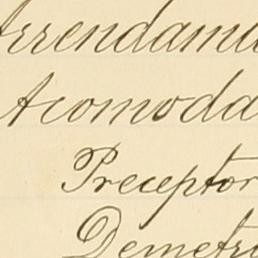 Arrendamie
Acomoda
Preceptor
Demetri